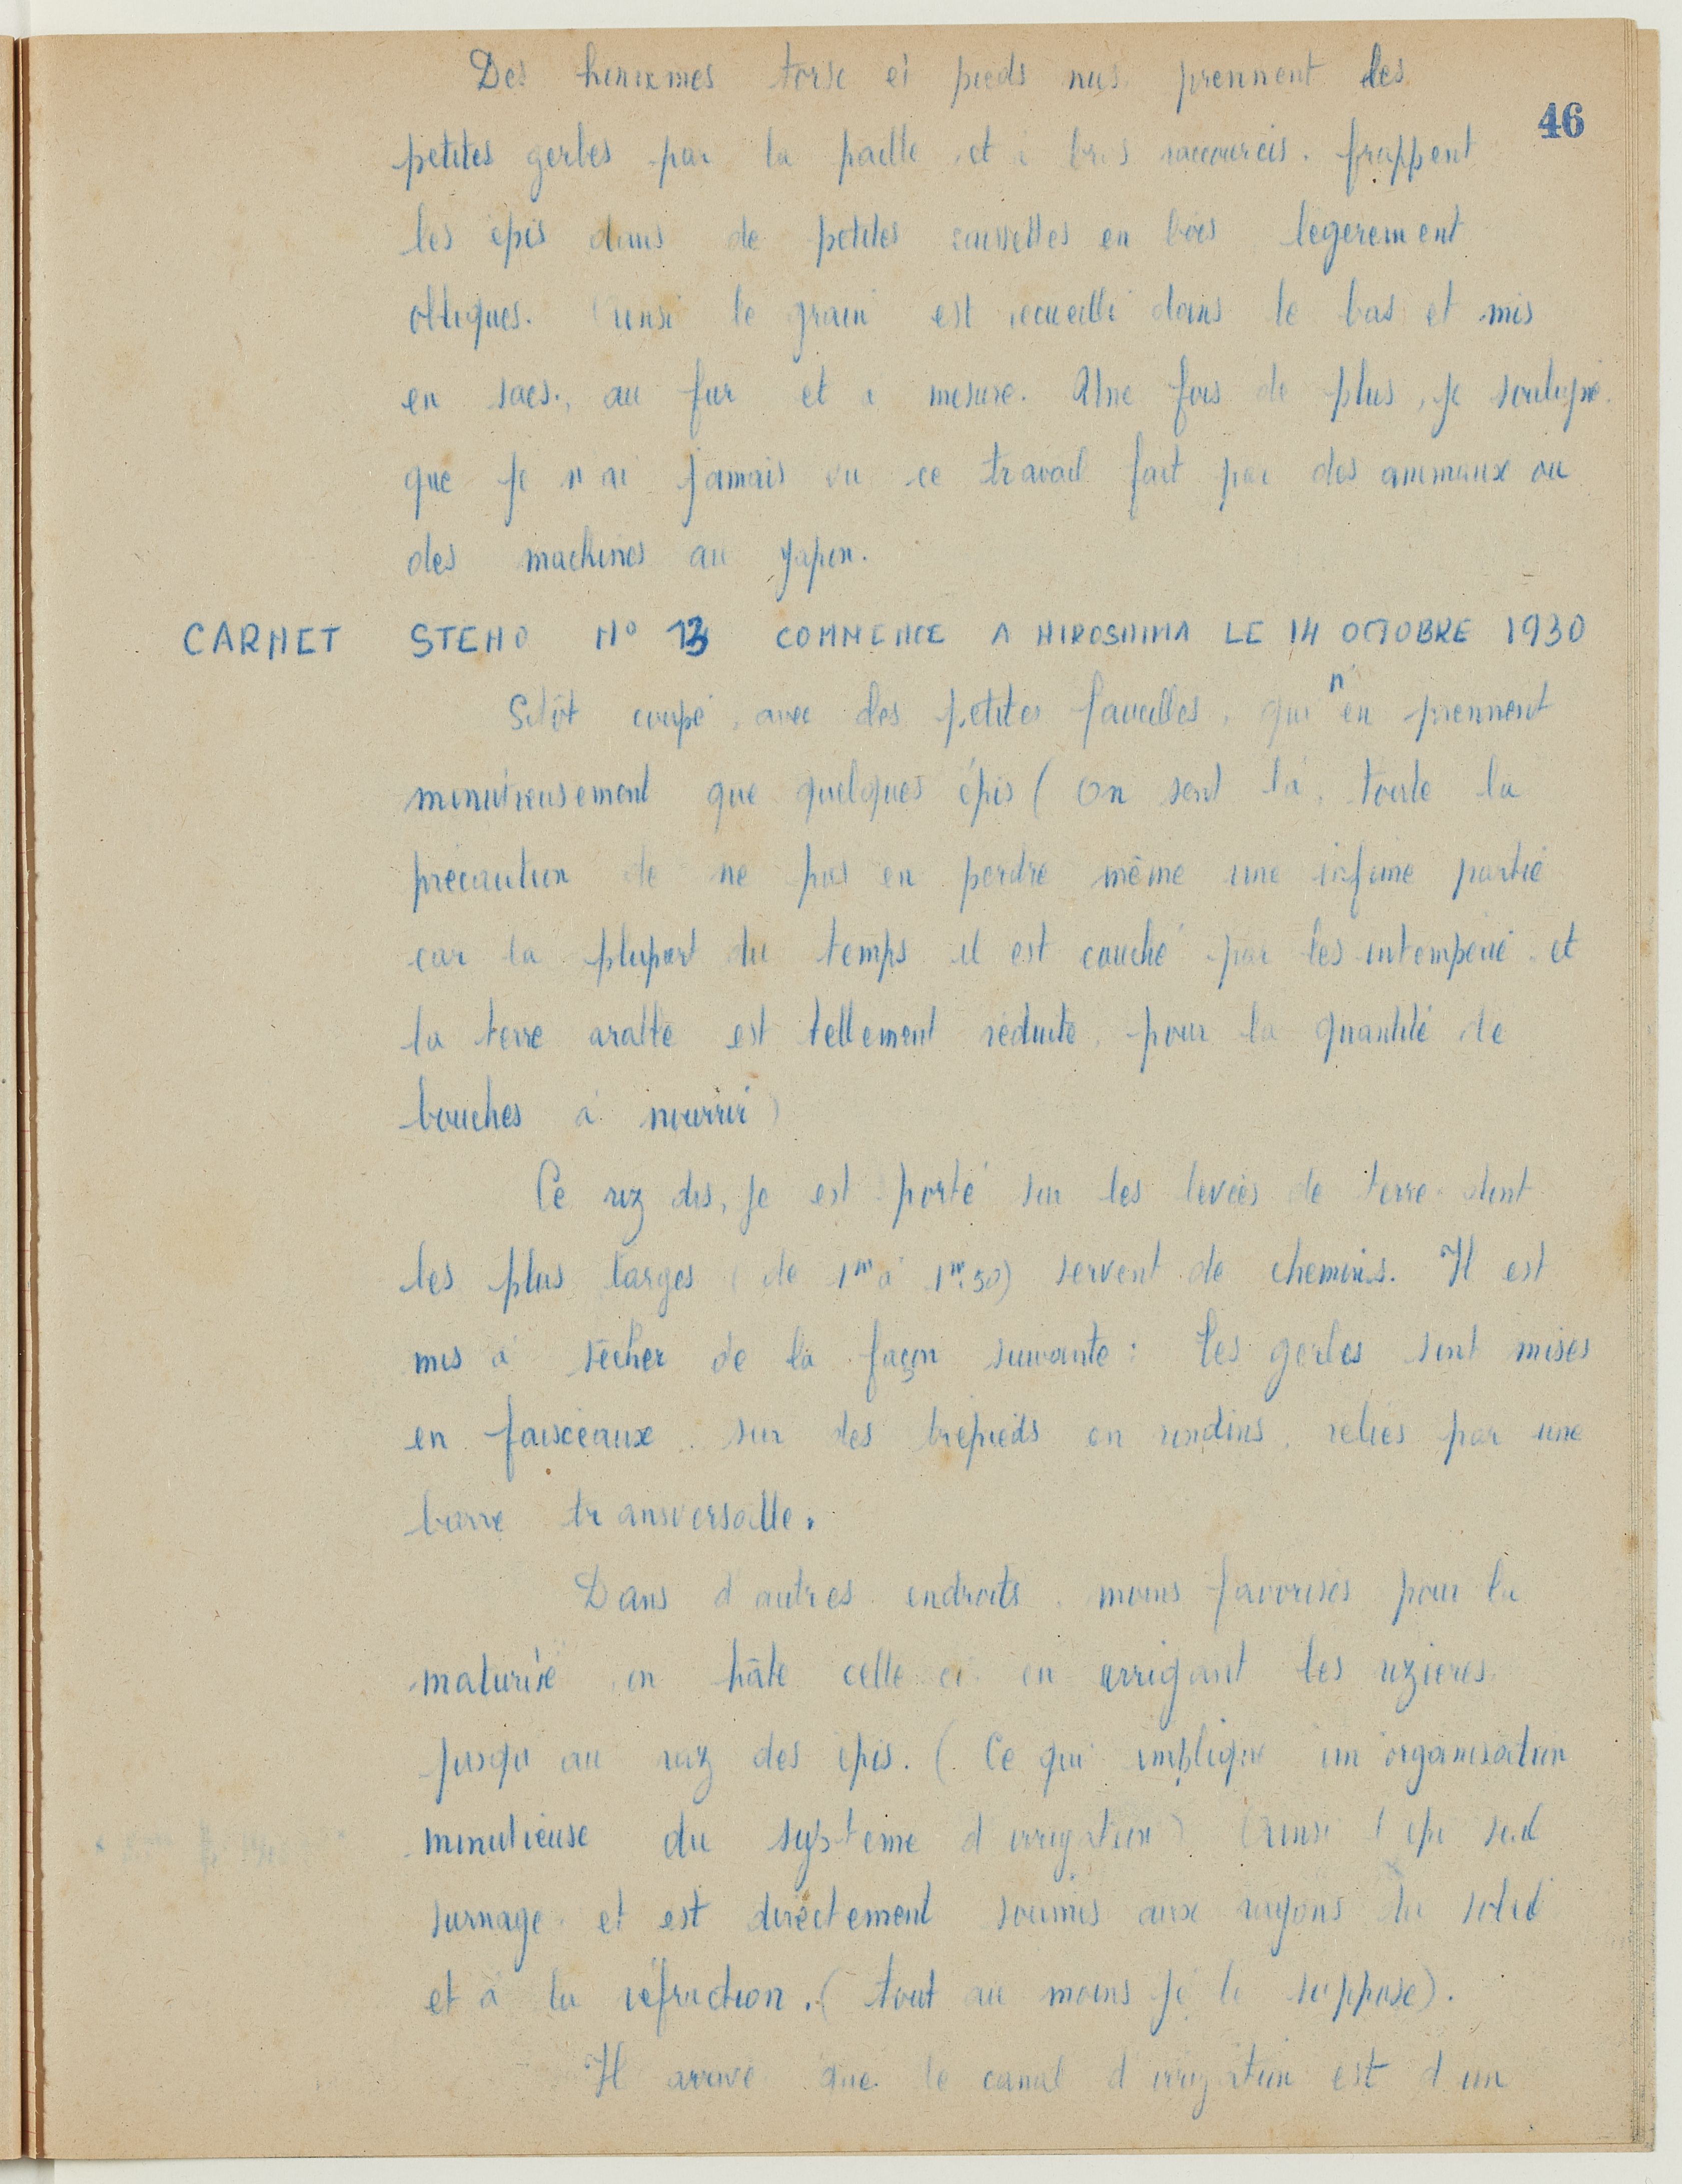 Des hommes torse et pieds nus prennent des
46
petites gerbes par la paille, et à bras raccourcis. frappent
les épis dans de petites caissettes en bois legerement
obliques. Ainsi le grain est recueilli dans le bas et mis
en sacs, au fur et à mesure. Une fois de plus, je souligne
que je n'ai jamais vu ce travail fait par des animaux ou
des machines au Japon.
CARNET STENO N° 13 COMMENCE A HIROSHIMA LE 14 OCTOBRE 1930
Sitôt coupé, avec des petites faucilles, qui n'en prennent
minutieusement que quelques épis (On sent là, toute la
precaution de ne pas en perdre même une infime partie
car la plupart du temps il est couché par les intemperie et
la terre arable est tellement réduite, pour la quantité de
bouches à nourrir)
Ce riz dis, je est porté sur les levées de terre dont
les plus larges (de 1m à 1m,50) servent de chemins. Il est
mis à sécher de la façon suivante : Les gerbes sont mises
en faisceaux sur des trepieds en rondins, reliés par une
barre transversalle.
Dans d'autres endroits, moins favorisés pour la
maturité, on hâte celle ci en irrigant les rizieres
jusqu'au raz des épis. (Ce qui implique un organisation
minutieuse du système d'irrigation) Ainsi l'épi seul
surnage et est directement soumis aux rayons du soleil
et à la réfraction. (tout au moins je le suppose).
Il arrive que le canal d'irrigation est d'un